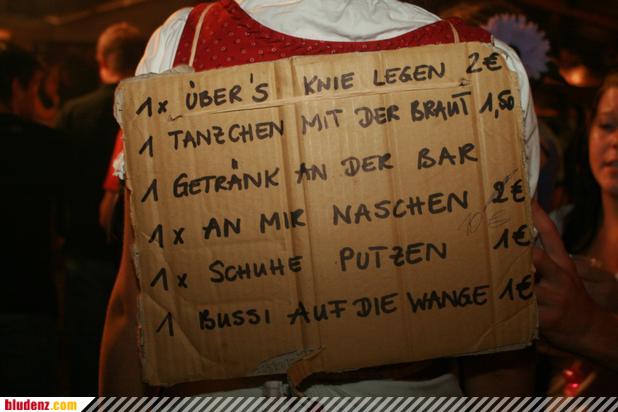 1x ÜBER'S KNIE LEGEN 2€
1 TANZCHEN MIT DER BRAUT 1,50
1 GETRÄNK AN DER BAR
1x AN MIR NASCHEN 2€
10€
1x SCHUHE PUTZEN 1€
1 BUSSI AUF DIE WANGE 1€
bludenz.com